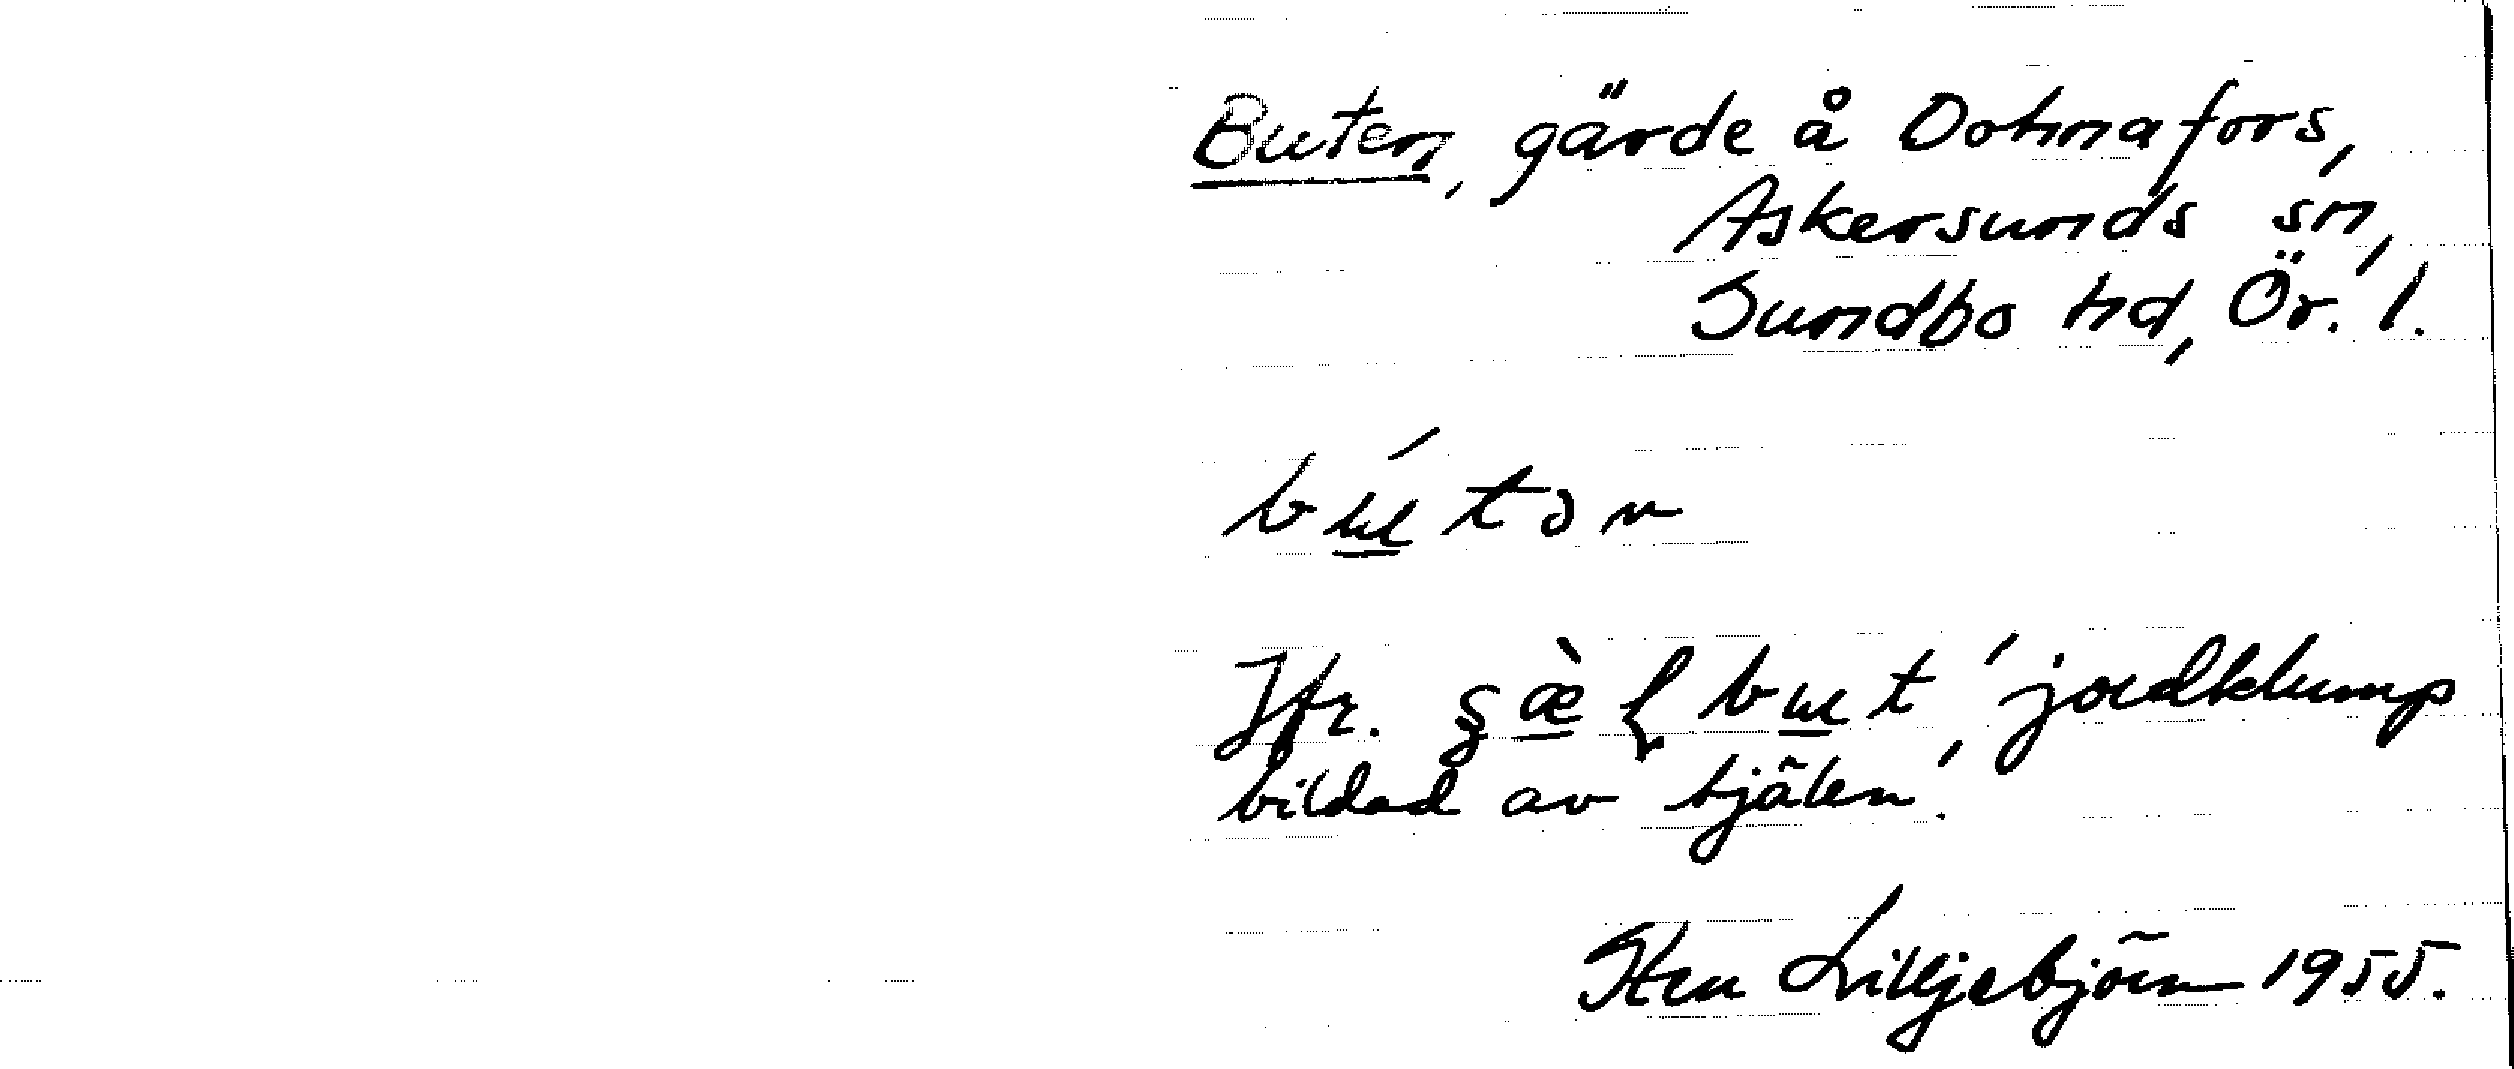 Buten, gärde å Dohnafors,
Askersunds sn,
Sundbo hd, Ör. l.
bú̲tən
Jfr. but 'jordklump
bildad av tjälen'.
Sten Lilljebjörn 1955.